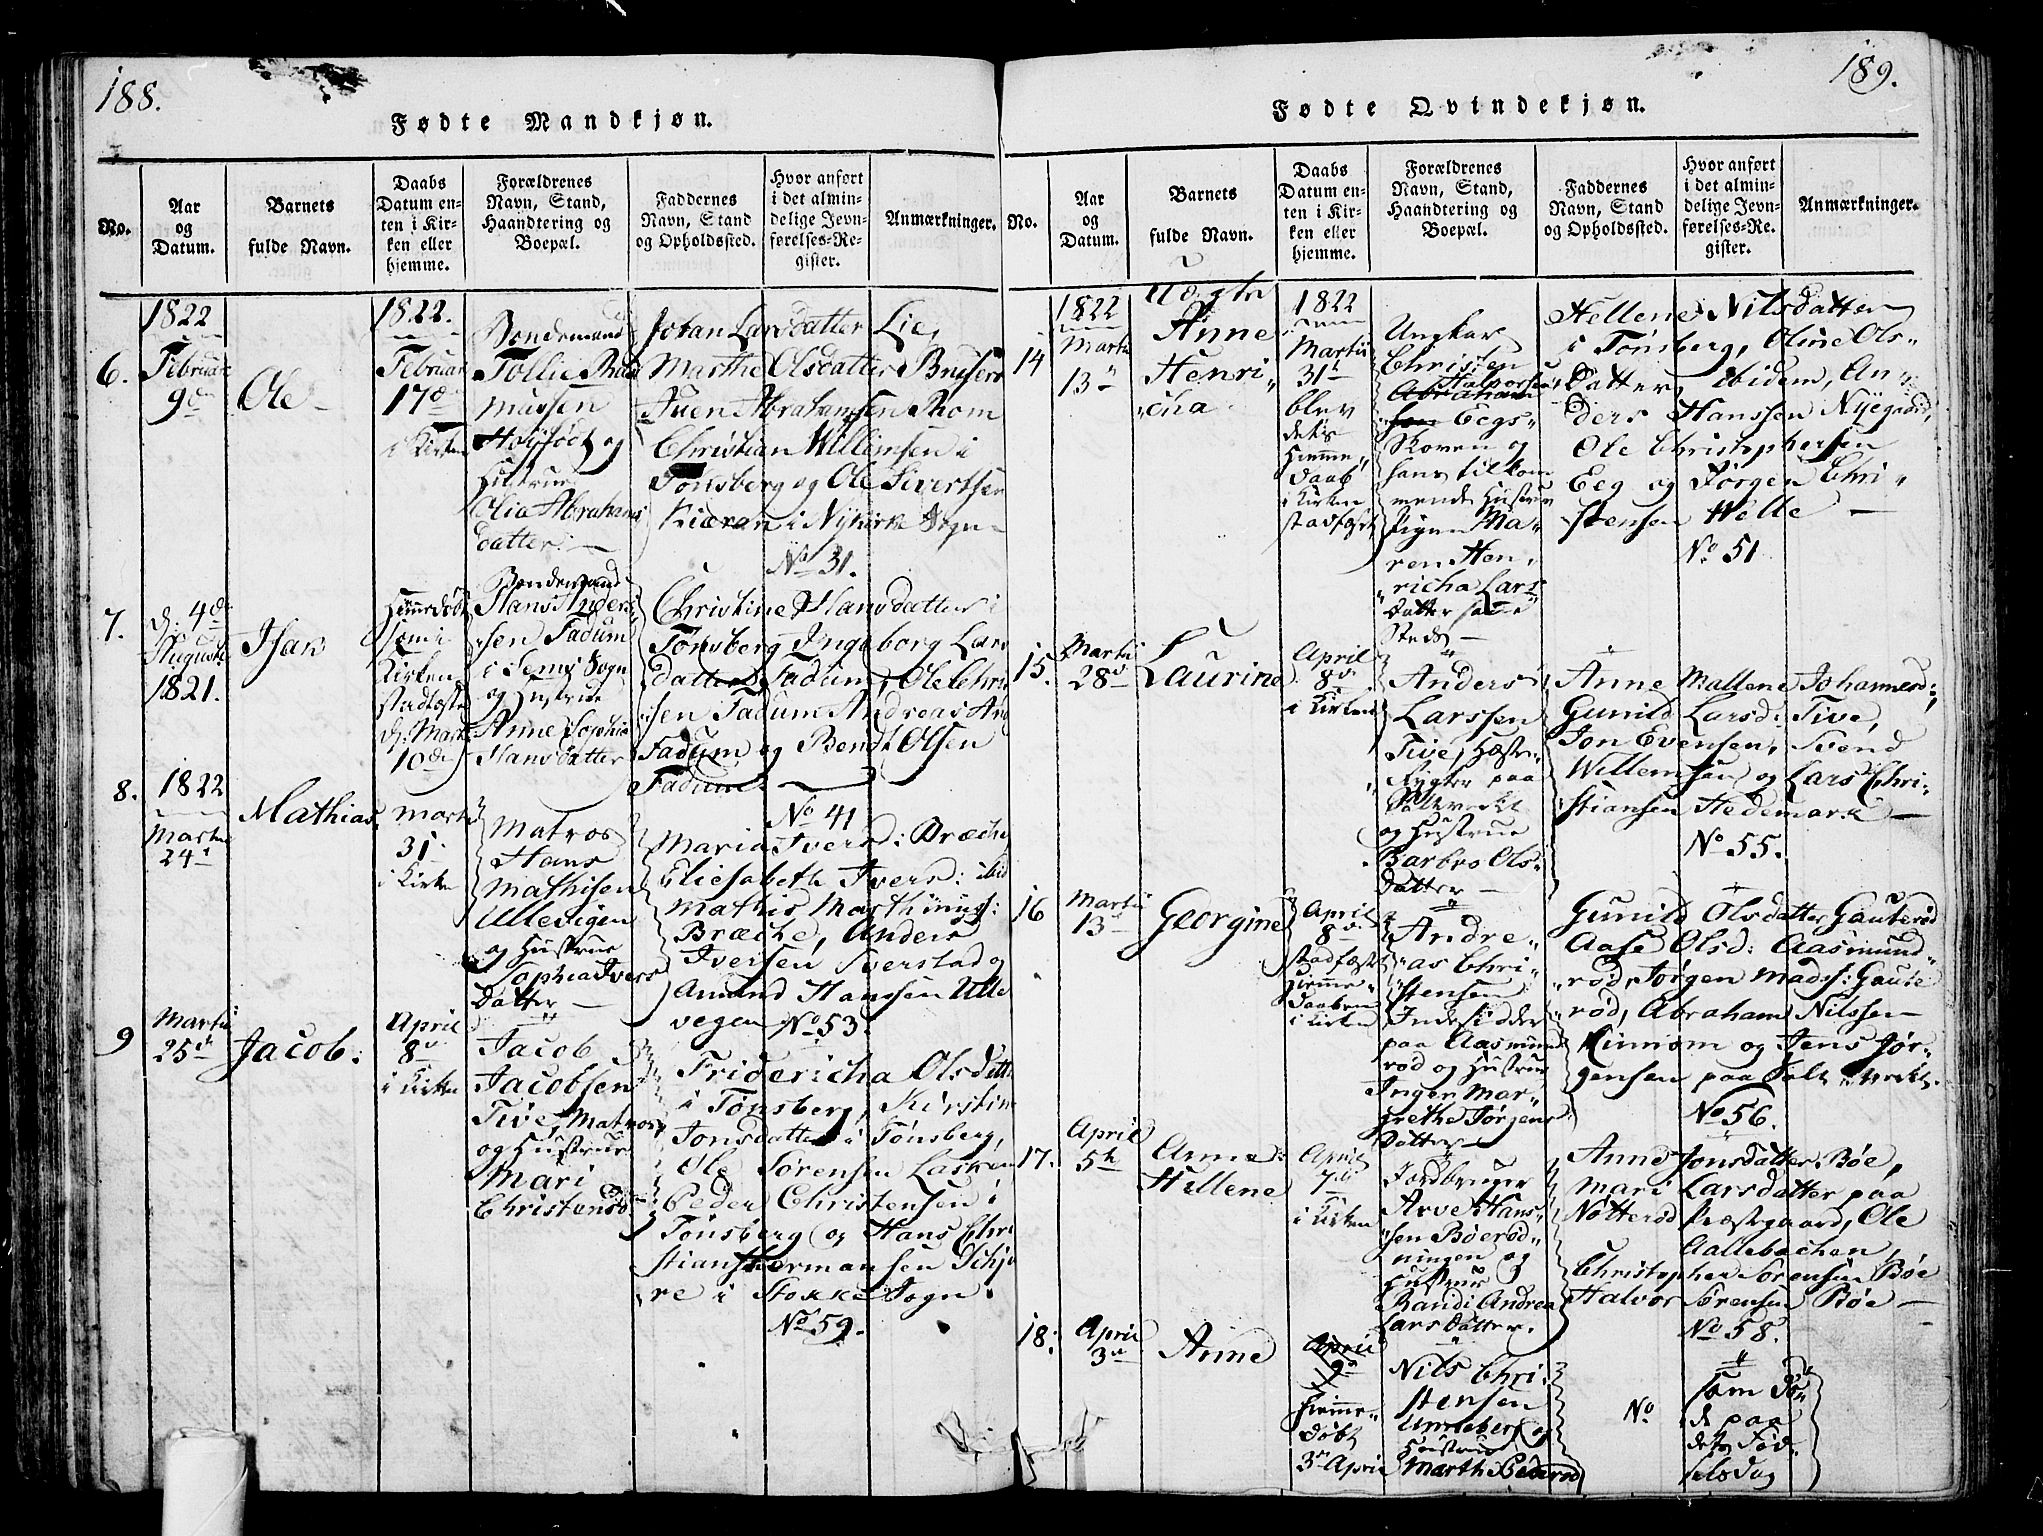 188.
Fødte Mandkjøn.
No.
Aar
og
Datum.
Barnets
fulde Navn.
Daabs
Datum en-
ten i Kir-
ken eller
hjemme.
Forældrenes
Navn, Stand,
Haandtering og
Boepæl.
Faddernes
Navn, Stand
og Opholdssted.
Hvor anført
i det almin-
delige Jevn-
førelses-Re-
gister.
Anmærkninger.
6.
1822
Februar
9de
Ole
1822.
Februar
17de
i Kirken
Bondemand
Tollie Ras
mussen
og
Hustrue
Olia Abrahams
datter.
Johan Larsdatter Lie,
Marthe Olsdatter
Auen Abrahamsen Rom
Christian Willumsen i
Tønsberg og Ole Sivertsen
i Nykirke Sogn
No 31.
7.
d: 4de
Augusti
1821.
Isak
Hiemedøbt
Kirken
stadfæstet
d: Marti
10de
Bondemand
Hans Ander
sen Fadum
i Sems Sogn
og Hustrue
Anne Sophie
Hansdatter
Christine Hansdatter i
Tønsberg Ingeborg Lars
datter Fadum, Ole Chri
sen Fadum Andreas And
Fadum og Bendt Olsen
Fadum.
No 41
8.
1822
Marti
24
Mathias
Marti
31
i Kirke
Matros
Hans
Mathisen
Ullevigen
og Hustrue
Sophia Ivers
Datter
Maria Iversd: Bræche
Eliesabeth Iversd: ibid
Mathis Marthinus:
Bræche, Anders
Iversen Sverstad og
Amund Hanssen Ulle
vegen No 53.
9
Martii
25de
Jacob:
April
8de
i Kirken
Jacob
Jacobsen
Tive, Matros,
og Hustrue
Mari
Christensd
Fridericha Olsdatt
i Tønsberg, Kirstine
Jonsdatter i Tønsberg,
Ole Sørensen
Peder Christensen i
Tønsberg og Hans Chri
stian Hermansen Schje
re i Stokke Sogn.
No 59.
189.
Fødte Qvindekjøn.
No.
Aar
og
Datum.
Barnets
fulde Navn.
Daabs
Datum en-
ten i Kir-
ken eller
hjemme.
Forældrenes
Navn, Stand,
Haandtering og
Boepæl.
Faddernes
Navn, Stand
og Opholdssted.
Hvor anført
i det almin-
delige Jevn-
førelses-Re-
gister.
Anmærkninger.
14
1822
Martii
13
Uægte
Anne
Henri-
cha
1822
Martii
31
blev
dets
Hiemme
daab
i Kirken
stadfæst
Ungkar
Christen
Halvorsen
Abraham
sen Eegs-
Skoven og
hans tilkom
mende Hustrue
Pigen Ma-
ren Hen-
richa Lars
Datter samme
Steds
Hellene Nilsdatter
i Tønsberg, Oline Ols-
Datter ibidem, An-
ders Hanssen Nyegaard,
Ole Christophersen
Eeg og Jørgen Chri-
stensen Welle
No 51
15.
Martii
28de
Laurine
April
8de
i Kirken
Anders
Larssen
Tive, Hæste-
Rygter paa
Saltverket
og Hustrue
Barbro Ols-
Datter
Anne Mallene Johannesd:,
Gunild Larsd: Tive,
Jon Evensen, Svend
Willemsen og Lars Chri-
stiansen Hedemark
No 55.
16
Martii
13de
Georgine
April
8de
stadfæst
Hiemme-
daaben
i Kirken
Andre-
as Chri-
stensen
Indesidder
paa Aasmund
rød og Hustrue
Inger Mar-
grethe Jørgens
Datter
Gunild Olsdatter Gauterød
Aase Olsd: Aasmund-
rød, Jørgen Madss: Gaute
rød, Abraham Nilssen
Rinnom og Jens Jør-
gensen paa Saltverket.
No 56.
17.
April
5te
Anne
Hellene
April
7de
i Kirken
Jordbruger
Arve Hans-
sen Bøerød-
ningen og
Hustrue
Randi Andrea
Larsdatter.
Anne Jonsdatter Bøe,
Mari Larsdatter paa
Nøtterød Præstegaard, Ole
Aallebachen,
Christopher Sørensen Bøe
Halvor Sørensen Bøe
No 58.
18.
April
3de
Anne
April
9de
Hiemme-
døbt
3de April
Nils Chri-
stensen
Unneberg og
Hustrue
Marthe Pedersd
No
som dø-
de paa
dets Fød-
selsdag